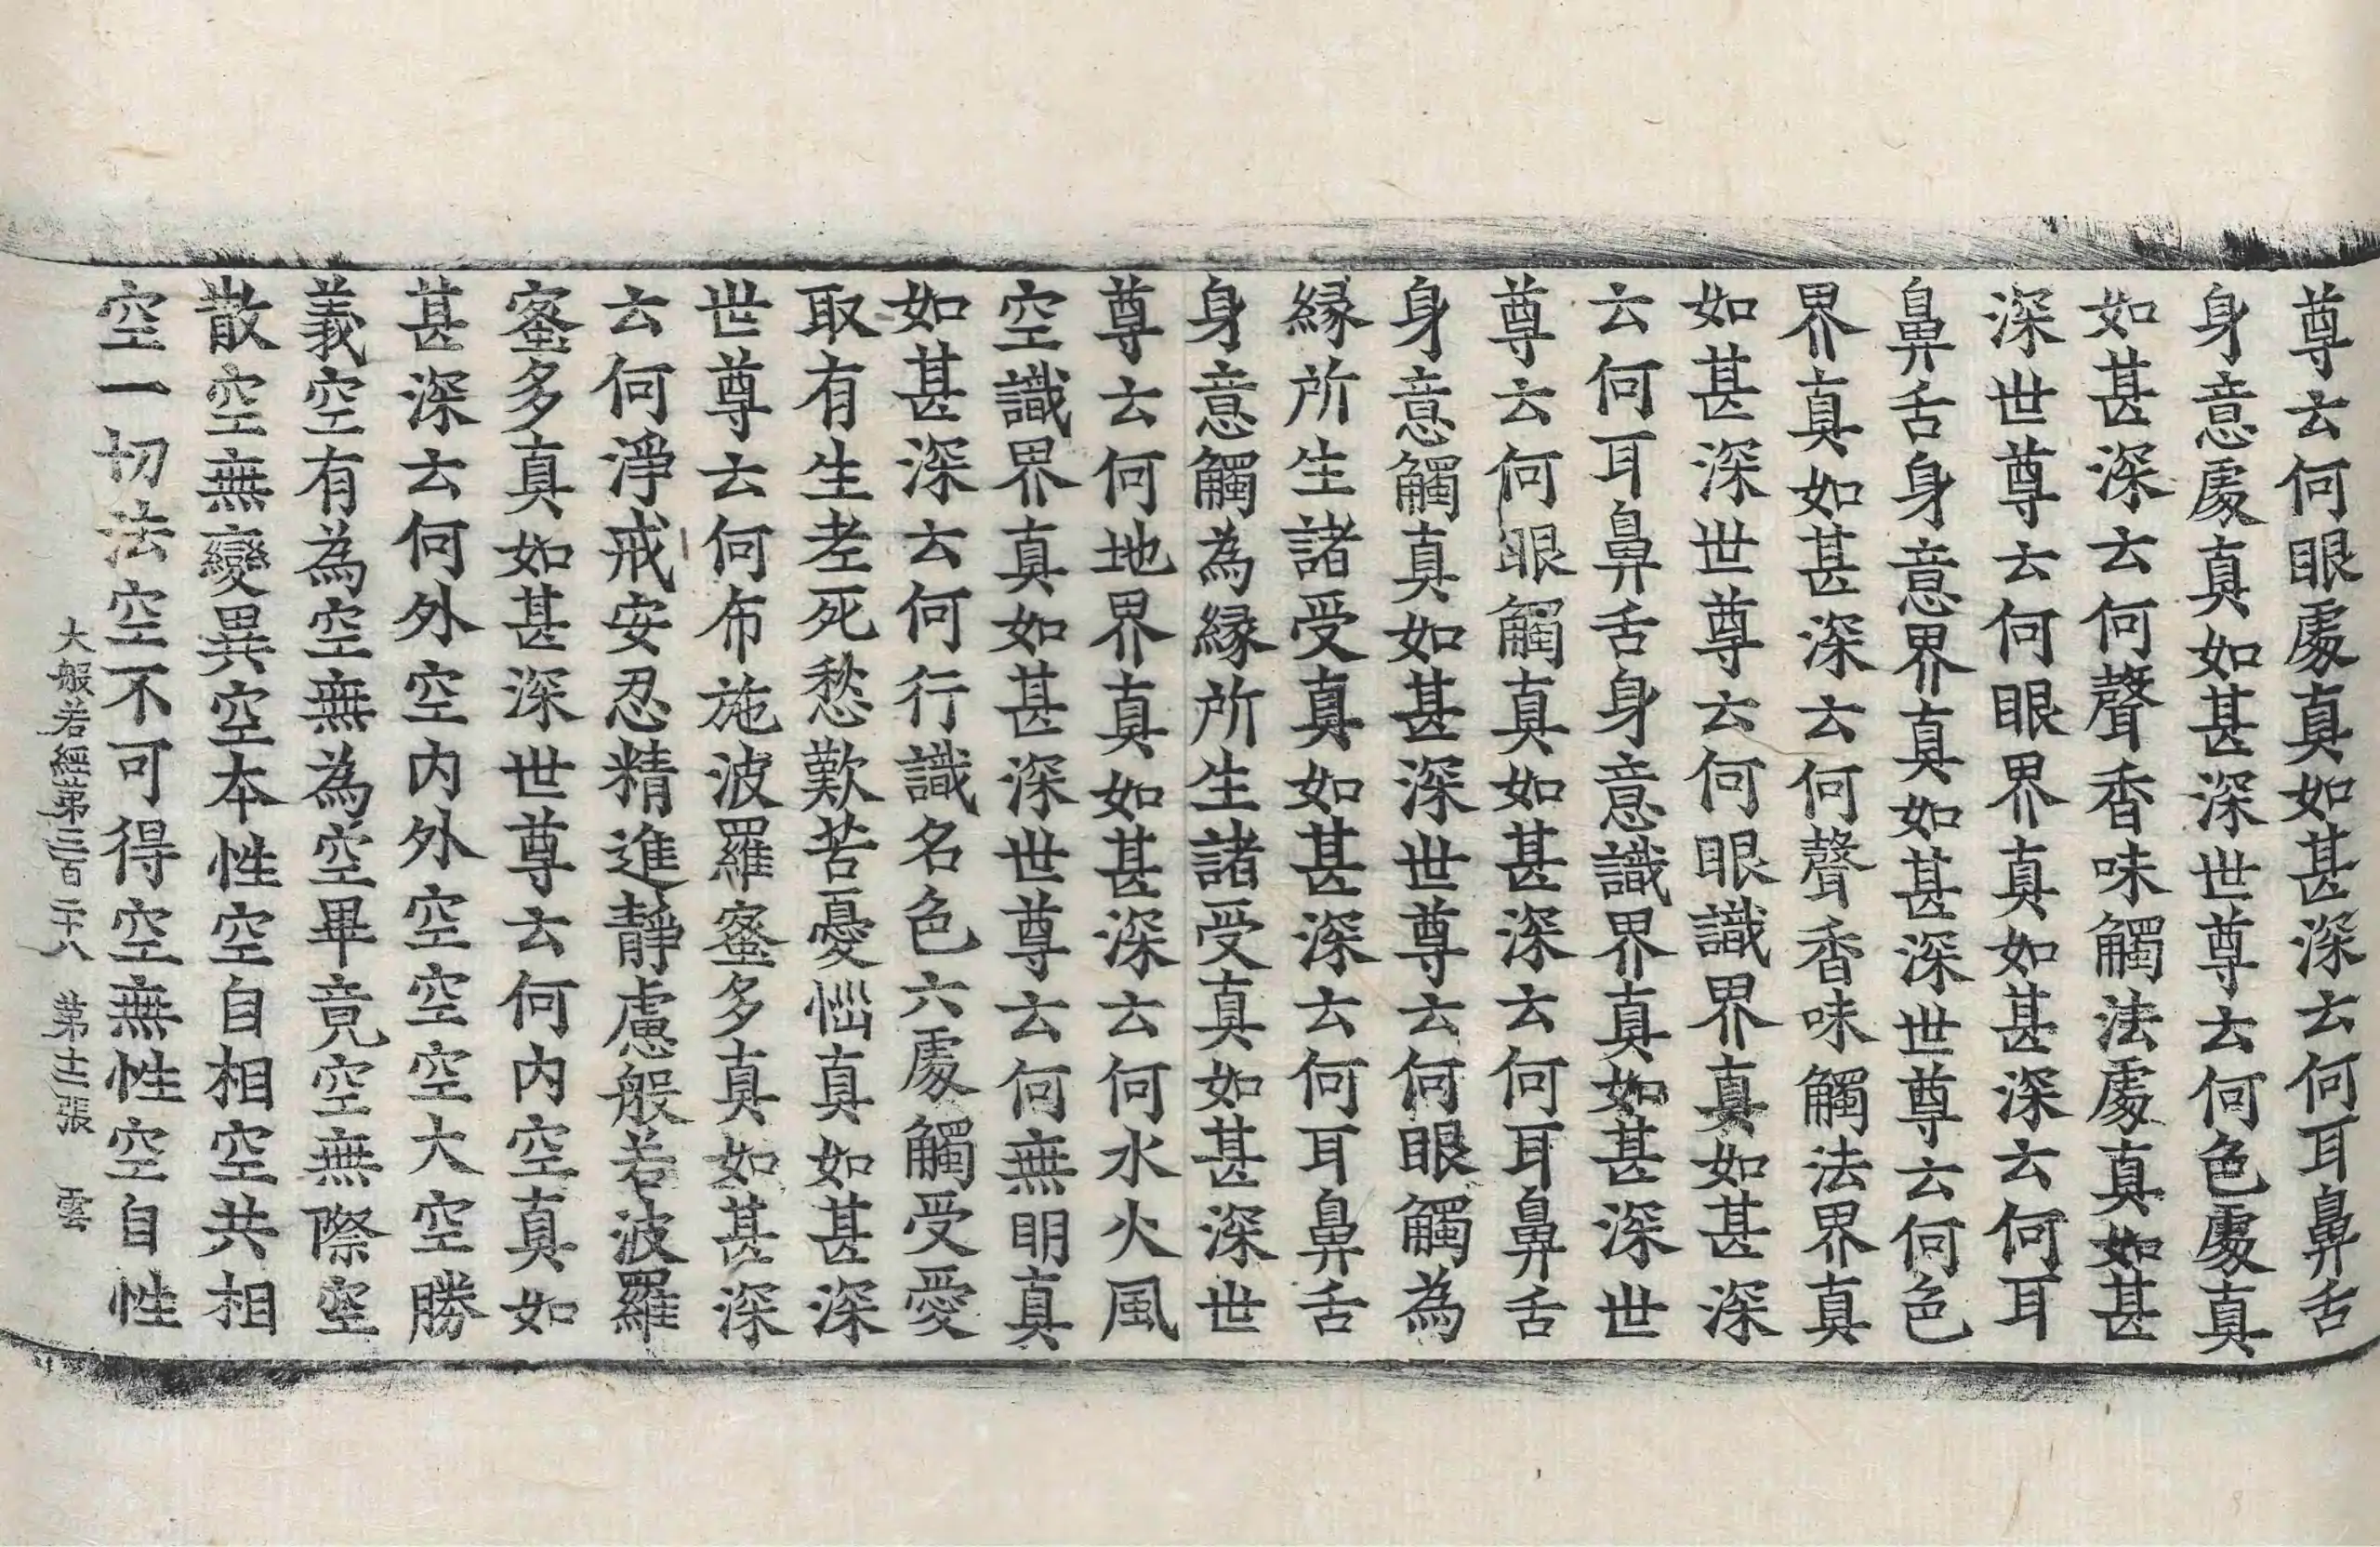 尊云何眼處真如甚深云何耳鼻舌
身意處真如甚深世尊云何色處真
如甚深云何聲香味觸法處真如甚
深世尊云何眼界真如甚深云何耳
鼻舌身意界真如甚深世尊云何色
界真如甚深云何聲香味觸法界真
如甚深世尊云何眼識界真如甚深
云何耳鼻舌身意識界真如甚深世
尊云何眼觸真如甚深云何耳鼻舌
身意觸真如甚深世尊云何眼觸為
緣所生諸受真如甚深云何耳鼻舌
身意觸為緣所生諸受真如甚深世
尊云何地界真如甚深云何水火風
空識界真如甚深世尊云何無明真
如甚深云何行識名色六處觸受愛
取有生老死愁歎苦憂惱真如甚深
世尊云何布施波羅蜜多真如甚深
云何淨戒安忍精進靜慮般若波羅
蜜多真如甚深世尊云何內空真如
甚深云何外空內外空空空大空勝
義空有為空無為空畢竟空無際空
散空無變異空本性空自相空共相
空一切法空不可得空無性空自性
大般若經第三百二十八 第十三張 雲